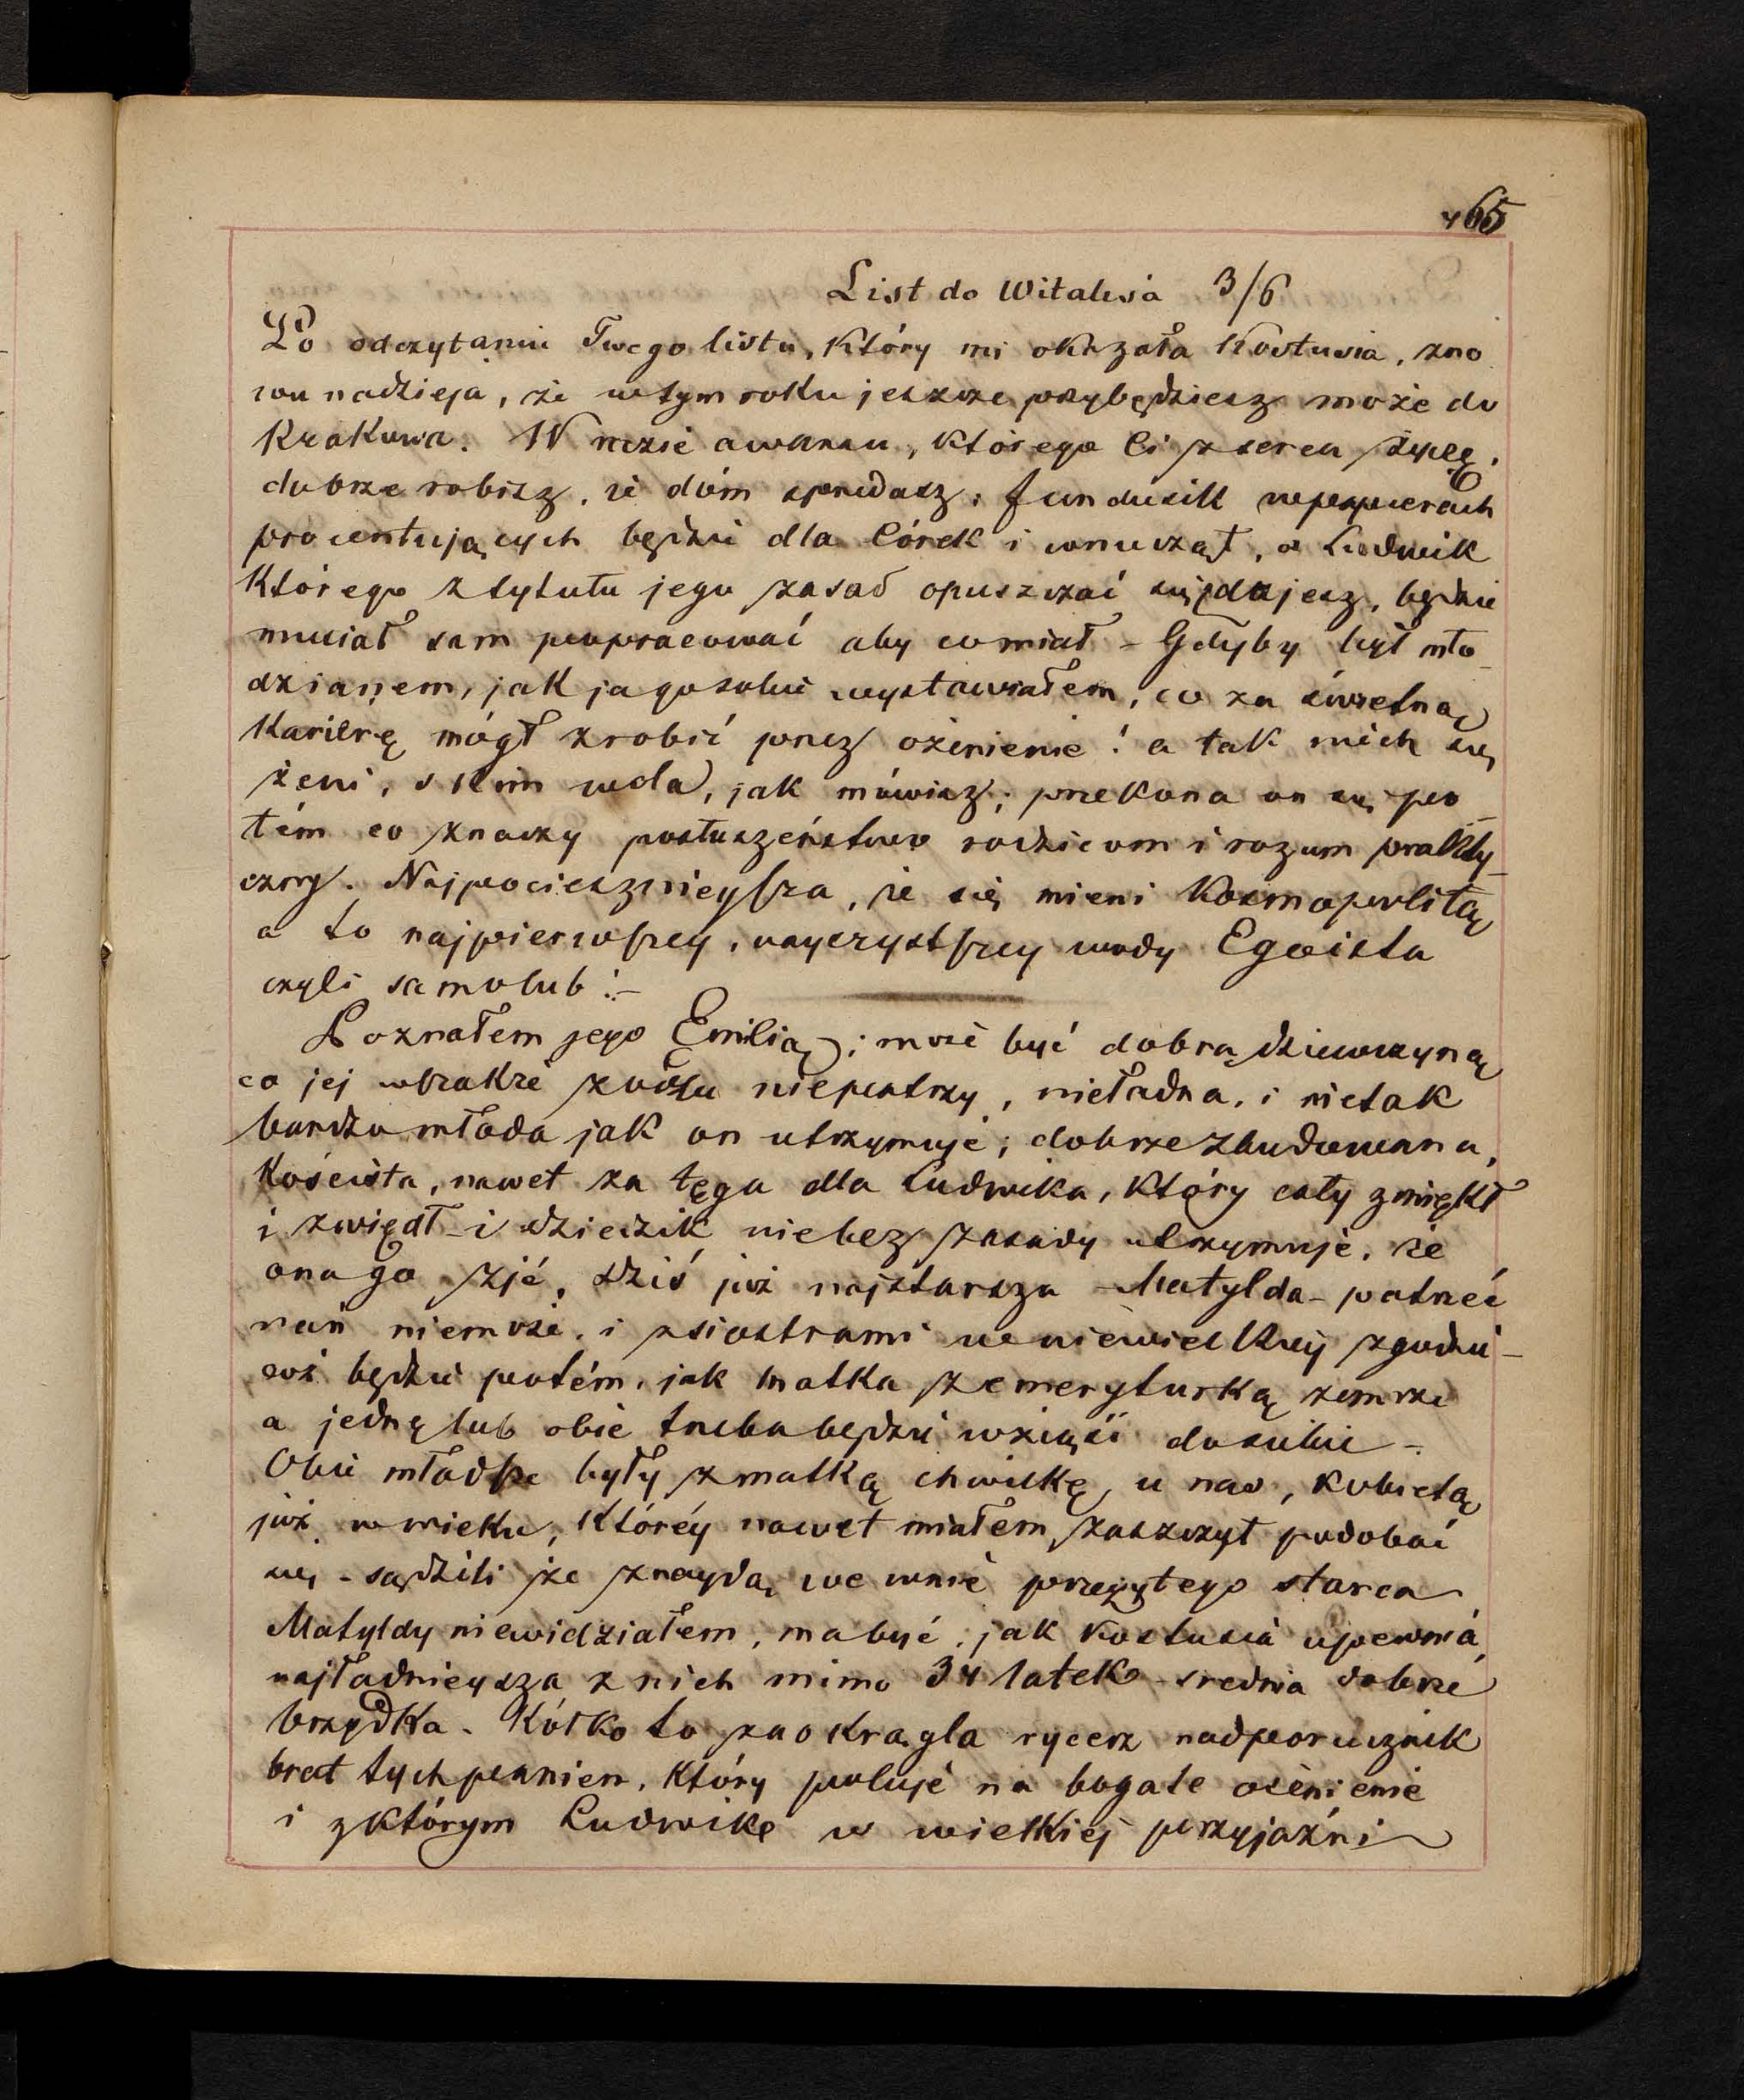 465
List do Witalisia 3/6
Po odczytaniu Twego listu, który mi okazała Kostusia, zno
wu nadzieja, że wtym roku jeszcze przybędziesz może do
Krakowa. W razie awansu, którego Ci z serca życzę,
dobrze robisz, że dóm sprzedasz. Fundusik w papierach
procentujących będzie dla Córek i wnucząt, a Ludwik
którego z tytułu jego zasad opuszczać się zdajesz, będzie
musiał sam popracować aby co miał – Gdyby był mło
dzianem, jak ja go sobie wystawiałem, co za świetną
Karierę mógł zrobić przez ożenienie! a tak niech się
żeni, s kim woła, jak mówisz; przekona on się po
tém co znaczy posłuszeństwo rodzicom i rozum prakty_
czny. Najpocieszniejsza, że się mieni Kosmopolitą
a to najpierwszej, nayczystszey wody Egoista
czyli samolub! –
Poznałem jego Emilią; może być dobrą dziewczyną
co jej wszakże z oczu niepatrzy, nieładna, i nietak
bardzo młoda jak on utrzymuje; dobrze zbudowana,
Koścista, nawet za tęga dla Ludwika, który cały zmiękł
i zwiędł – i dziedzik nie bez zasady utrzymuje, że
ona go zjé, dziś już najstarsza – Matylda – patrzeć
nań niemoże, i z siostrami w niewielkiej zgodzie –
coś będzie potém, jak matka z emeryturką zemrze
a jedną lub obie trzeba będzie wziąść do siebie –
Obie młodsze były z matką chwilkę u nas, kobietą
już w wieku, któréy nawet miałem zaszczyt podobać
się – sądzili że znaydą we mnie przeżytego starca
Matyldy niewidziałem, ma być, jak Kostusia upewnia,
najładnieysza z nich mimo 34 latek – srednia dobrze
brzydka. Kółko to zaokrągla rycerz nadporucznik
brat tych panien, który poluje na bogate ożenienie
i z którym Ludwik w wielkiej przyjaźni